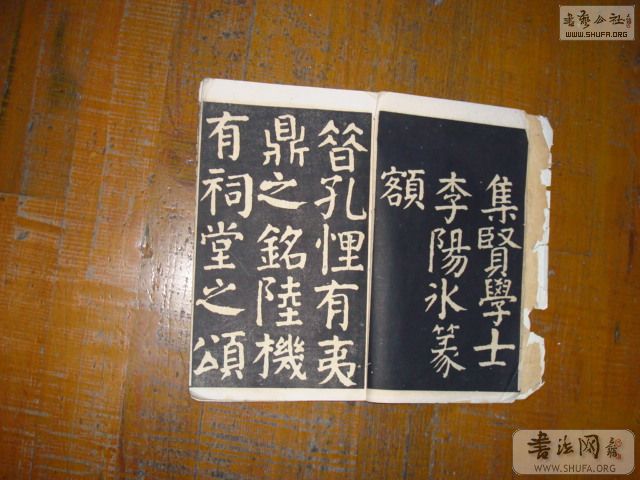 集賢學士
李陽冰篆
額
昝孔悝有夷
鼎之銘陸機
有祠堂之頌
書藝公社
WWW.SHUFA.ORG
书法网
WWW.SHUFA.ORG